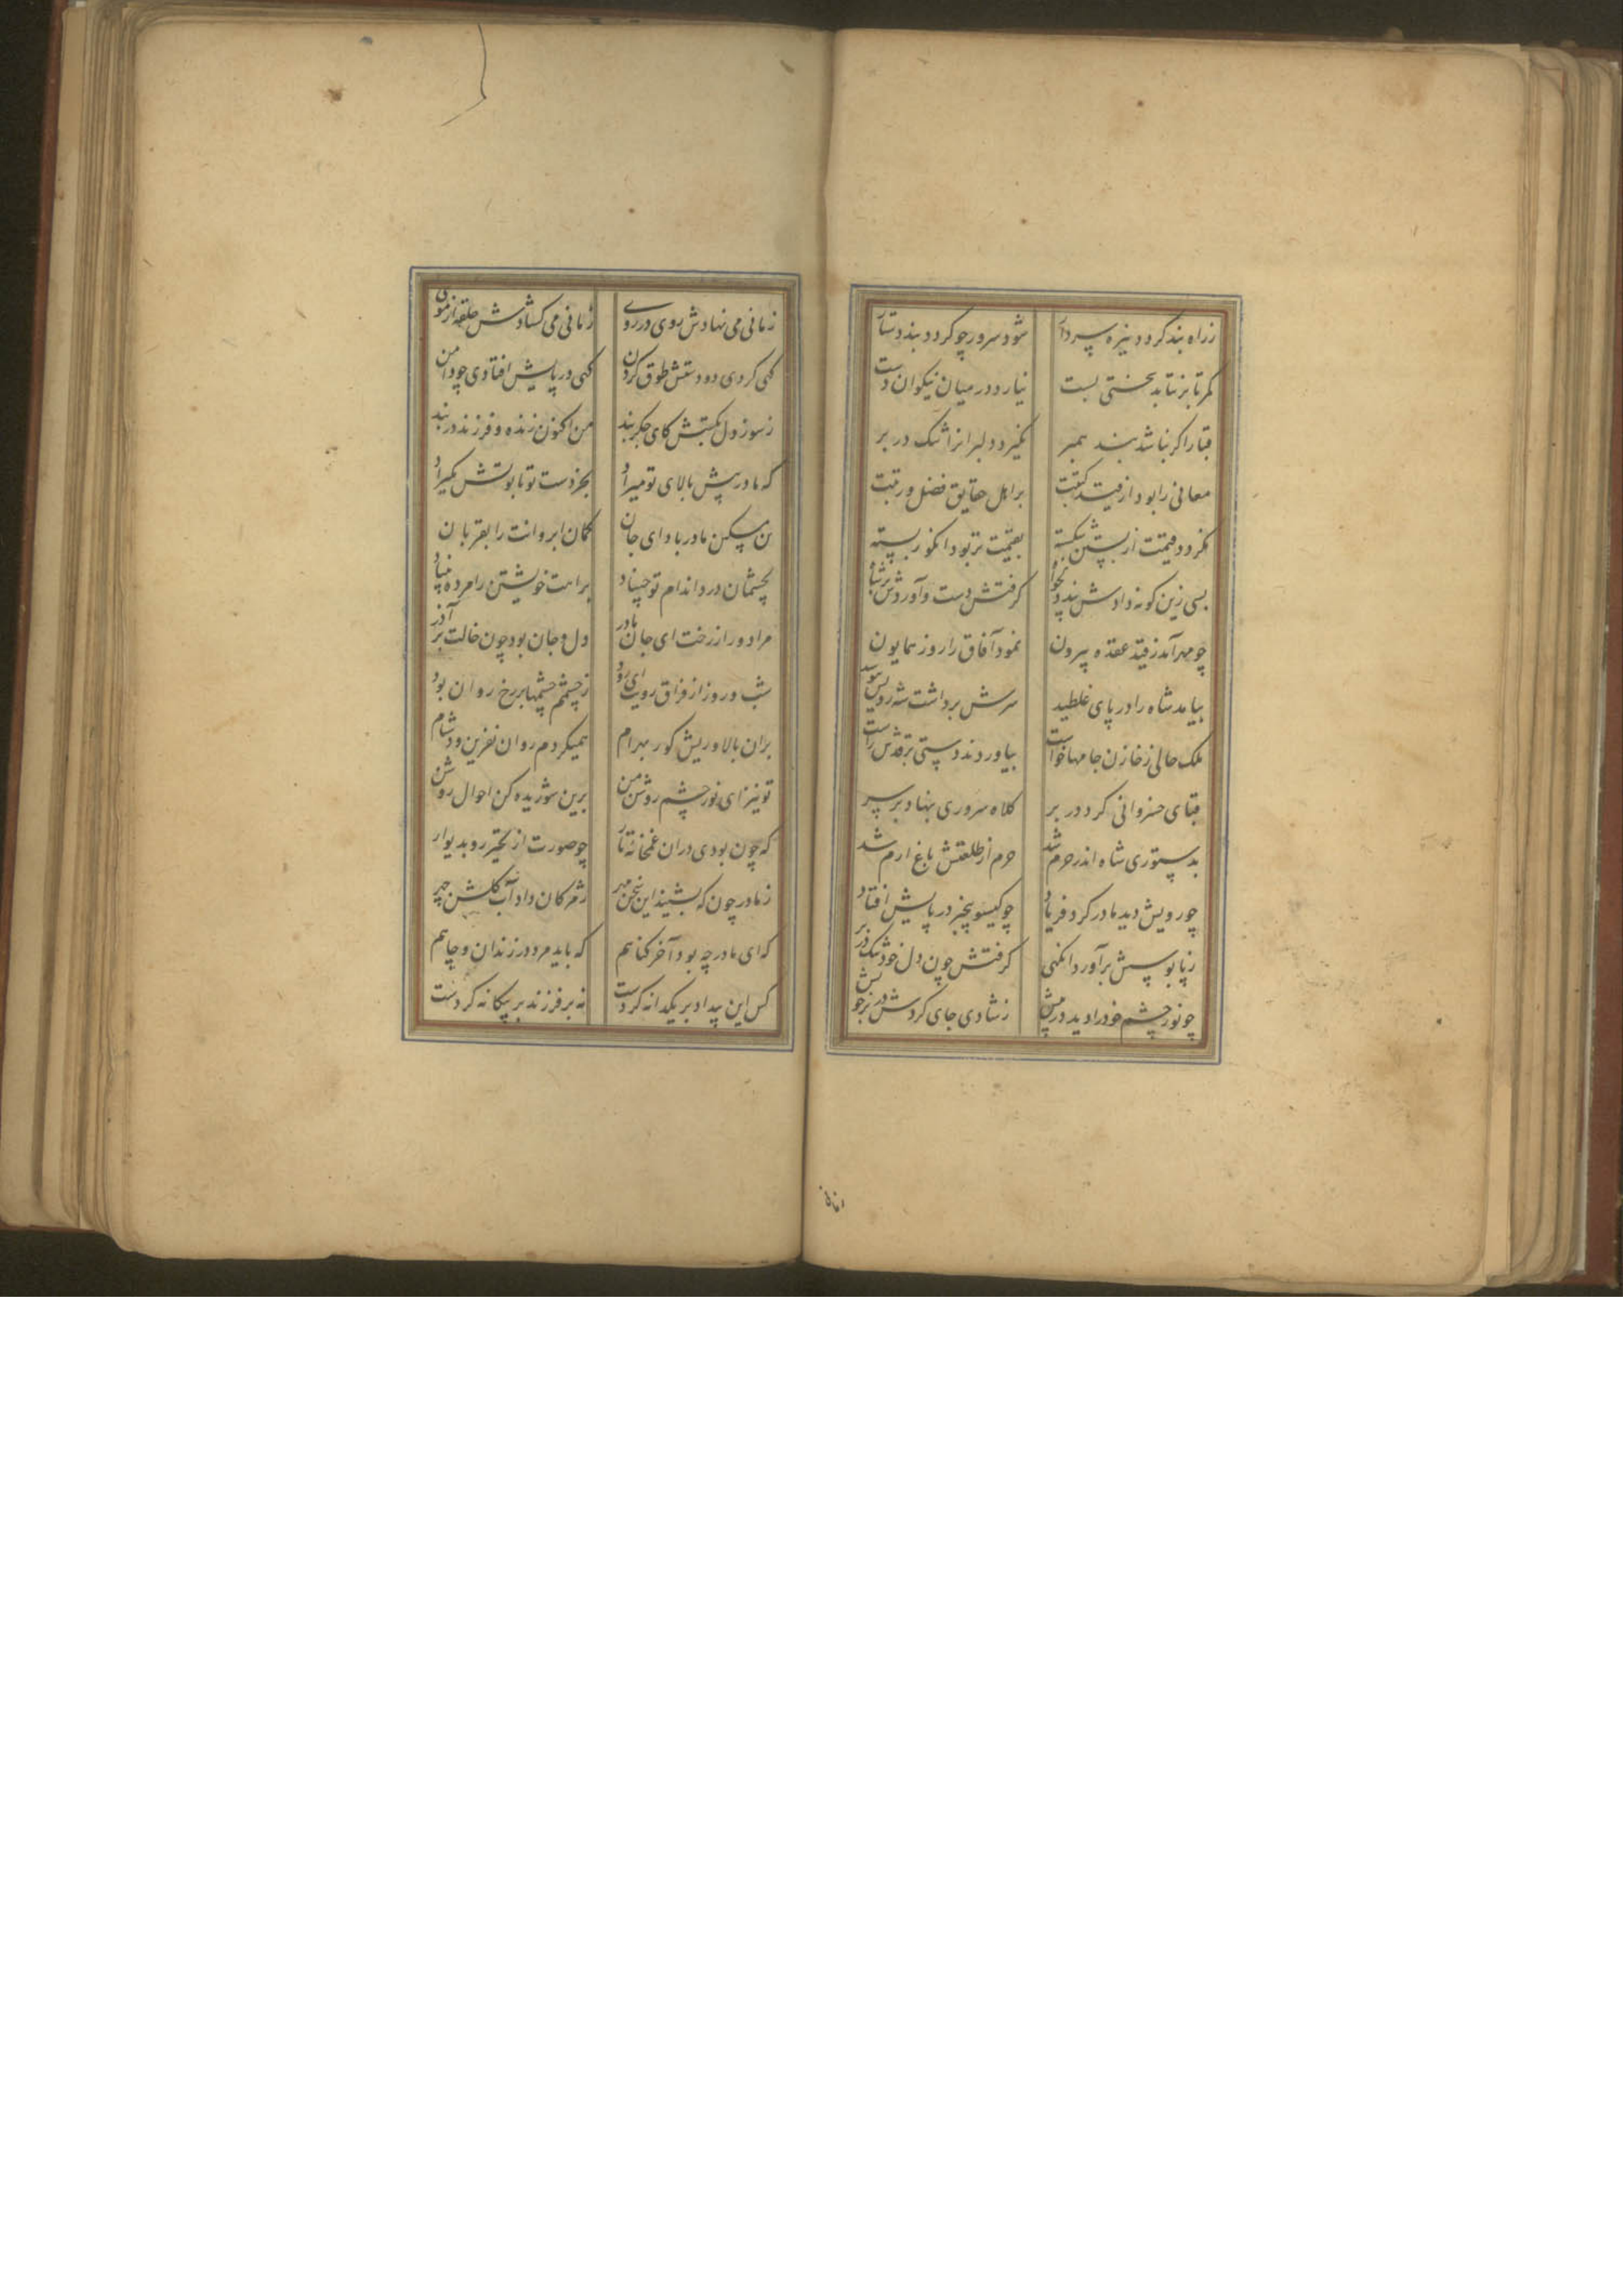 زراه بند کردد نیزه سردار شود سرور چو کردد بند دستار
کمر تا برنتابد بختی بست نیارد در میان نیکوان دست
قبا را کر نباشد بند همبر نکیرد دلبرانرا تنک در بر
معانی را بود از قید کتبت بر اهل حقایق فضل و رتبت
نکردد قیمتت از بستن شکسته بقیمت تر بود انکور بسته
بسی زین کونه دادش پند و کرفتش دست و آوردش
چو مهر آمد ز قید عقده بیرون نمود آفاق را روز همایون
بیامد شاه را در پای غلطید سرش برداشت شه رویش ببوسید
ملک حالی ز خازن جامها خواست بیاوردند دستی بر قدش راست
قبای خسروانی کرد در بر کلاه سروری بنهاد بر سر
بدستوری شاه اندر حرم شد حرم از طلعتش باغ ارم شد
چو رویش دید مادر کرد فریاد چو کیسو بیخبر در پایش افتاد
ز پابوسش برآورد انکهی سر کرفتش چون دل خود تنک در بر
چو نور چشم خود را دید در پیش ز شادی جای کردش در بر خویش
زمانی می نهادش روی در روی زمانی می کشادش حلقه از موی
کهی کردی دو دستش طوق کردن کهی در پایش افتادی چو دامن
ز سوز دل بکفتش کای جکربند من اکنون زنده و فرزند در بند
که مادر پیش بالای تو میراد بجز دست تو تابوتش مکیراد
تن مسکین مادر باد ای جان کمان ابروانت را بقربان
بچشمان درد اندام تو چیناد براهت خویشتن را مرده بیناد
مرا دور از رخت ای جان مادر دل و جان بود چون خالت بر آذر
شب و روز از فراق رویت ای رود ز چشمم چشمها بر رخ روان بود
بران بالا و ریش کور بهرام همیکردم روان نفرین و دشنام
تو نیز ای نور چشم روشن من برین شوریده کن احوال روشن
که چون بودی دران غمخانه تار چو صورت از تحیر رو بدیوار
ز مادر چون که بشنید این سخن مهر ز مژکان داد آب کلشن چهر
که ای مادر چه بود آخر کناهم که باید مرد در زندان و چاهم
کس این بیداد بر یکدانه کردست نه بر فرزند بر بیکانه کردست